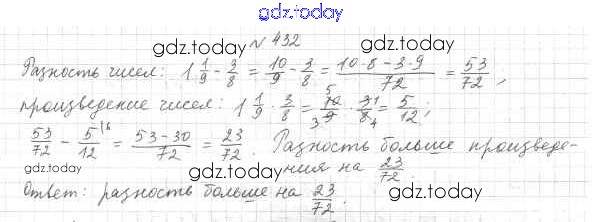 gdz.today
gdz.today № 432 gdz.today
Разность чисел: 1 1/9 - 3/8 = 10/9 - 3/8 = (10·8-3·9)/72 = 53/72;
произведение чисел: 1 1/9 · 3/8 = 10/9 · 3/8 = 5/12;
53/72 - 5/12 = (53-30)/72 = 23/72. Разность больше произведе-
gdz.today gdz.today ния на 23/72.
Ответ: разность больше на 23/72. gdz.today